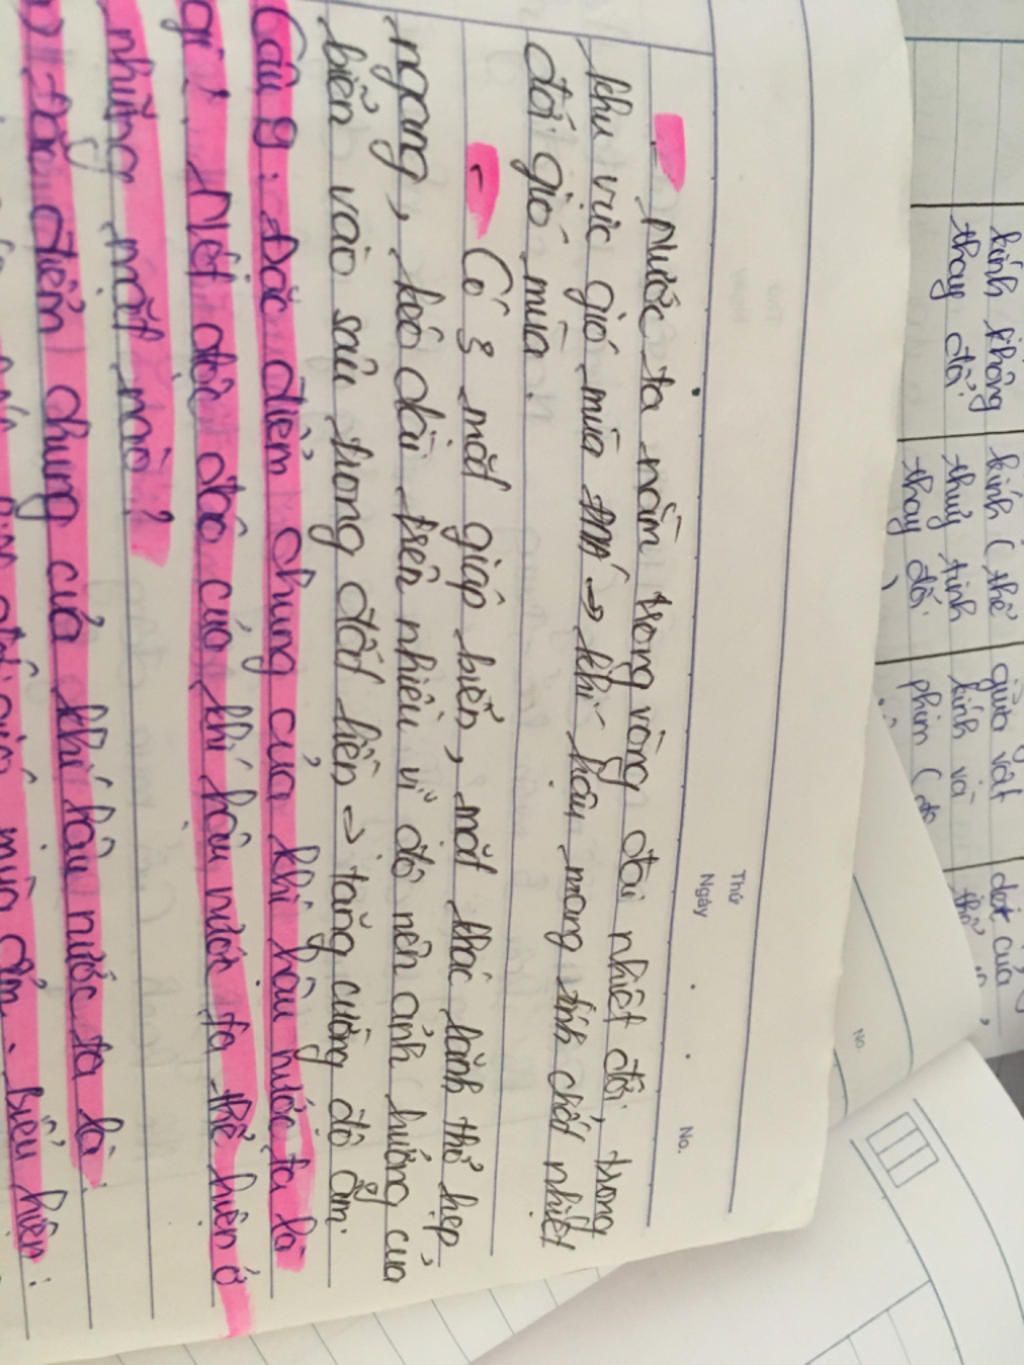 Thứ
Ngày
No.
- Nước ta nằm trong vòng đai nhiệt đới, trong
khu vực gió mùa → khí hậu mang tính chất nhiệt
đới gió mùa.
- Có 3 mặt giáp biển, mặt khác lãnh thổ hẹp
ngang, kéo dài trên nhiều vĩ độ nên ảnh hưởng của
biển vào sâu trong đất liền → tăng cường độ ẩm.
Câu 9: Đặc điểm chung của khí hậu nước ta là
gì? Nét độc đáo của khí hậu nước ta thể hiện ở
những mặt nào?
Đặc điểm chung của khí hậu nước ta là:
mùa ẩm, biểu hiện:
kính không
thay đổi
kính (thể
thuỷ tinh
thay đổi)
giữa vật
kính và
phim (do
dẹt của
thể
No.